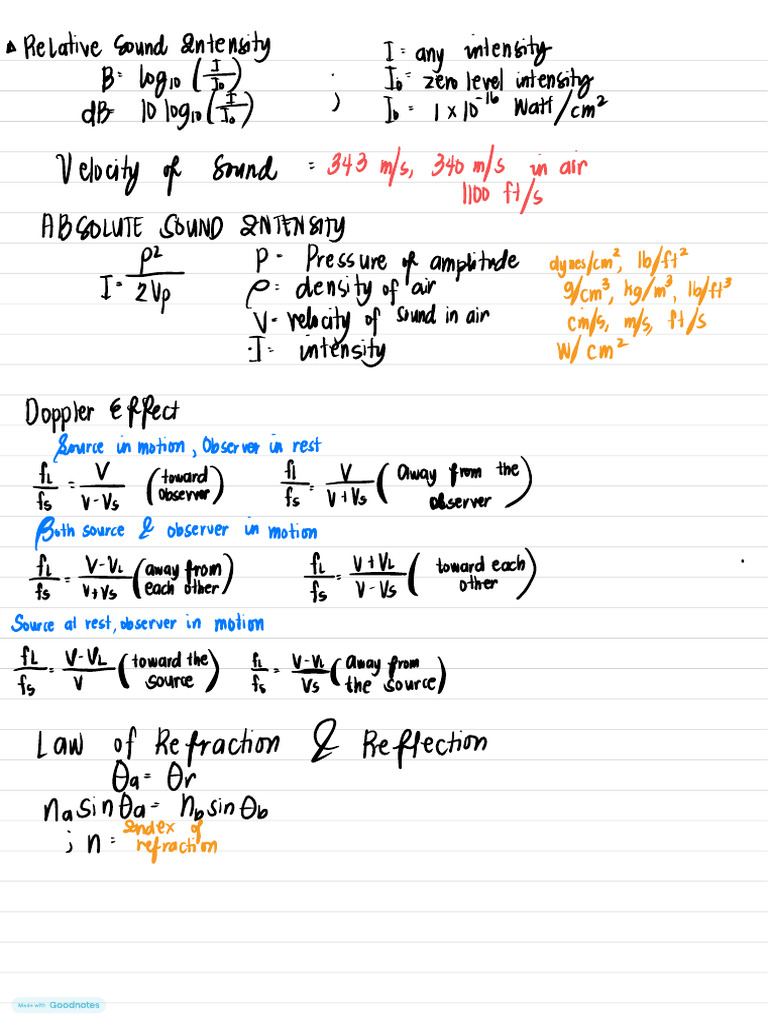 Relative Sound Intensity
I = any intensity
B = log10 (I/I0) ; I0 = zero level intensity
dB = 10 log10 (I/I0) I0 = 1 x 10^-16 Watt/cm²
Velocity of Sound = 343 m/s, 340 m/s in air
1100 ft/s
ABSOLUTE SOUND INTENSITY
I = P²/2Vρ
P = Pressure of amplitude dynes/cm², lb/ft²
ρ = density of air g/cm³, kg/m³, lb/ft³
V = velocity of sound in air cm/s, m/s, ft/s
I = intensity W/cm²
Doppler Effect
Source in motion, Observer in rest
fL/fs = V/V-Vs (toward observer) fL/fs = V/V+Vs (away from the observer)
Both source & observer in motion
fL/fs = V-VL/V+Vs (away from each other) fL/fs = V+VL/V-Vs (toward each other)
Source at rest, observer in motion
fL/fs = V-VL/V (toward the source) fL/fs = V-VL/Vs (away from the source)
Law of Refraction & Reflection
θa = θr
na sin θa = nb sin θb
; n = index of refraction
Made with Goodnotes